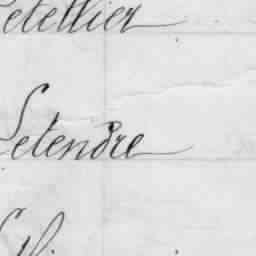 Letellier
Letendre